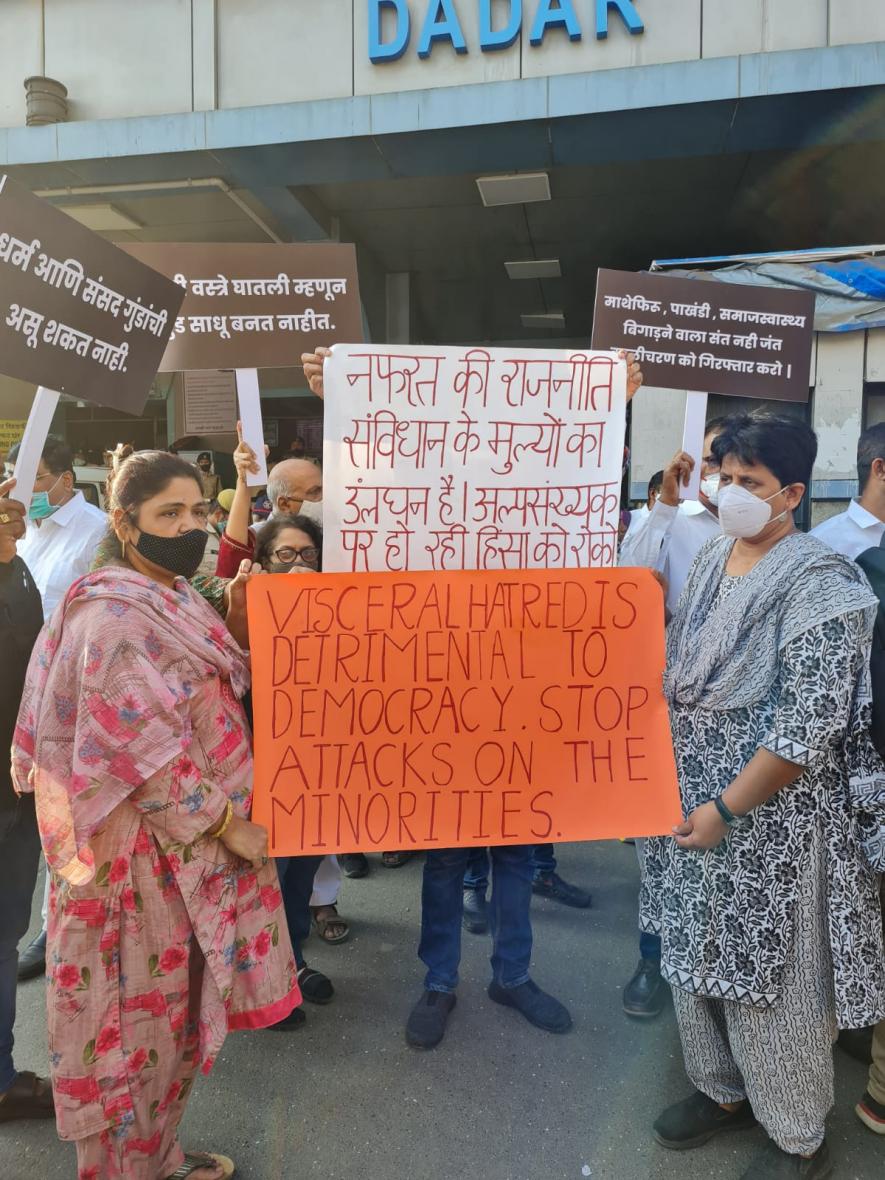 DADAR
धर्म आणि संसद गुंडांची
असू शकत नाही.
वस्त्रे घातली म्हणून
साधू बनत नाहीत.
माथेफिरू, पाखंडी, समाजस्वास्थ्य
बिगाड़ने वाला संत नही जंत
को गिरफ्तार करो |
नफरत की राजनीति
संविधान के मुल्यों का
उंलघन है। अल्पसंख्यक
पर हो रही हिंसा को रोको
VISCERAL HATRED IS
DETRIMENTAL TO
DEMOCRACY. STOP
ATTACKS ON THE
MINORITIES.